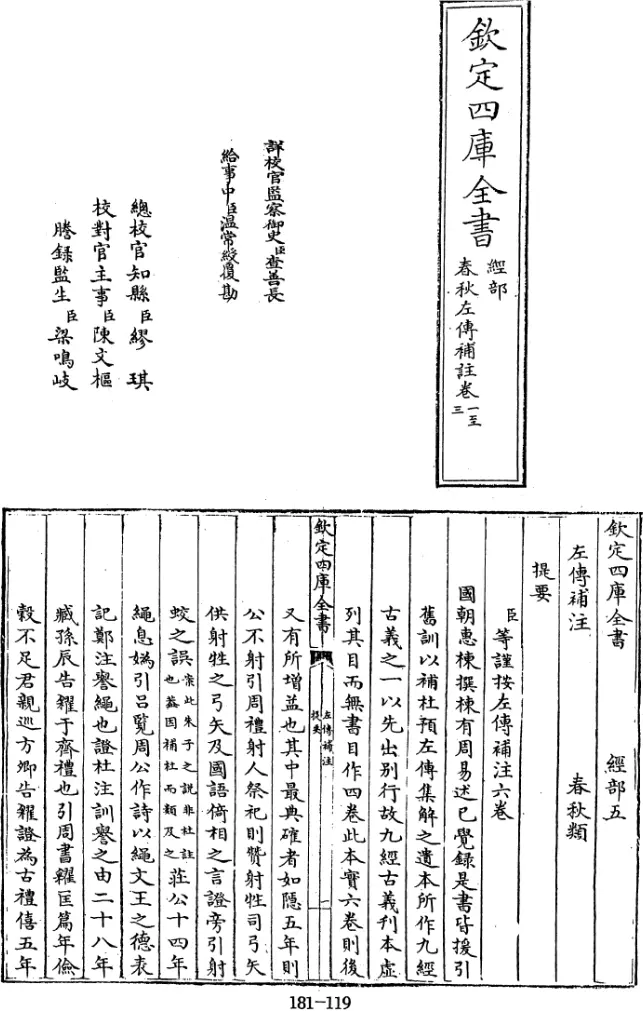 欽定四庫全書
經部
春秋左傳補註卷一至三
詳校官監察御史臣查善長
給事中臣溫常綬覆勘
總校官知縣臣繆琪
校對官主事臣陳文樞
謄錄監生臣梁鳴岐
欽定四庫全書 經部五
左傳補注 春秋類
提要
臣等謹按左傳補注六卷
國朝惠棟撰棟有周易述已覺録是書皆援引
舊訓以補杜預左傳集解之遺本所作九經
古義之一以先出别行故九經古義刋本虛
列其目而無書目作四卷此本實六卷則後
欽定四庫全書 左傳補注 提要 一
又有所增益也其中最典確者如隱五年則
公不射引周禮射人祭祀則贊射牲司弓矢
供射牲之弓矢及國語倚相之言證旁引射
蛟之誤案此朱子之說非杜註也蓋因補杜而類及之莊公十四年
繩息媯引呂覽周公作詩以繩文王之德表
記鄭注譽繩也證杜注訓譽之由二十八年
臧孫辰告糴于齊禮也引周書糴匡篇年儉
穀不足君親巡方卿告糴證為古禮僖五年
181-119